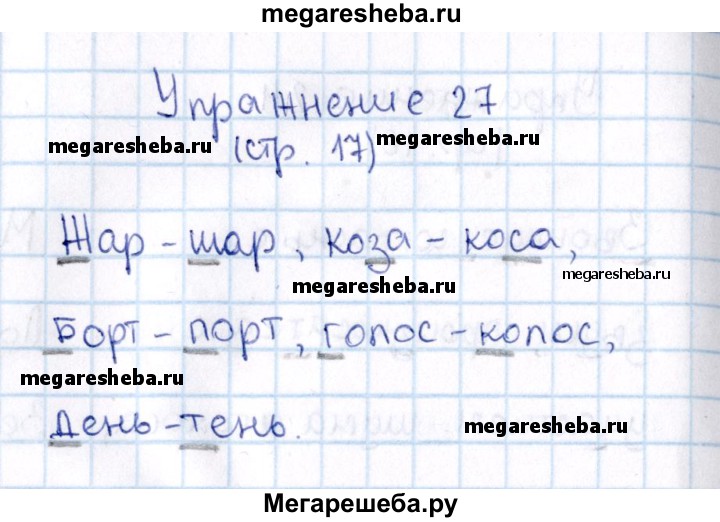 megaresheba.ru
Упражнение 27
megaresheba.ru
(стр. 17)
megaresheba.ru
Жар - шар, коза - коса,
megaresheba.ru
megaresheba.ru
Борт - порт, голос - колос,
megaresheba.ru
День - тень.
megaresheba.ru
Мегарешеба.ру